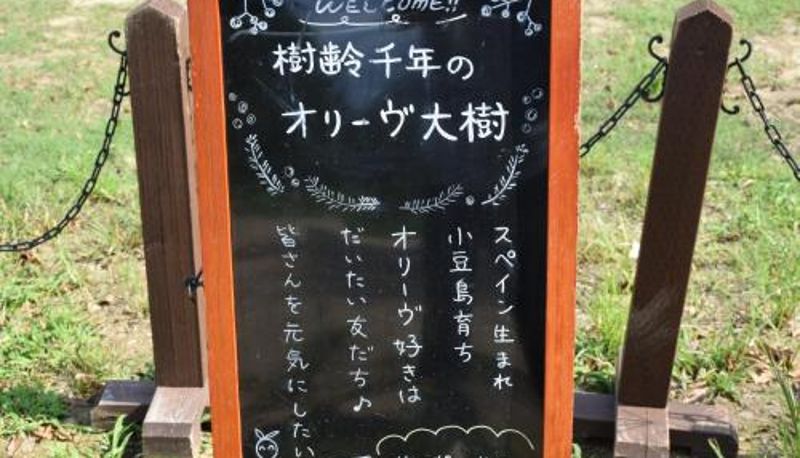 WELCOME!!
樹齢千年の
オリーヴ大樹
スペイン生まれ
小豆島育ち
オリーヴ好きは
だいたい友だち♪
皆さんを元気にしたい